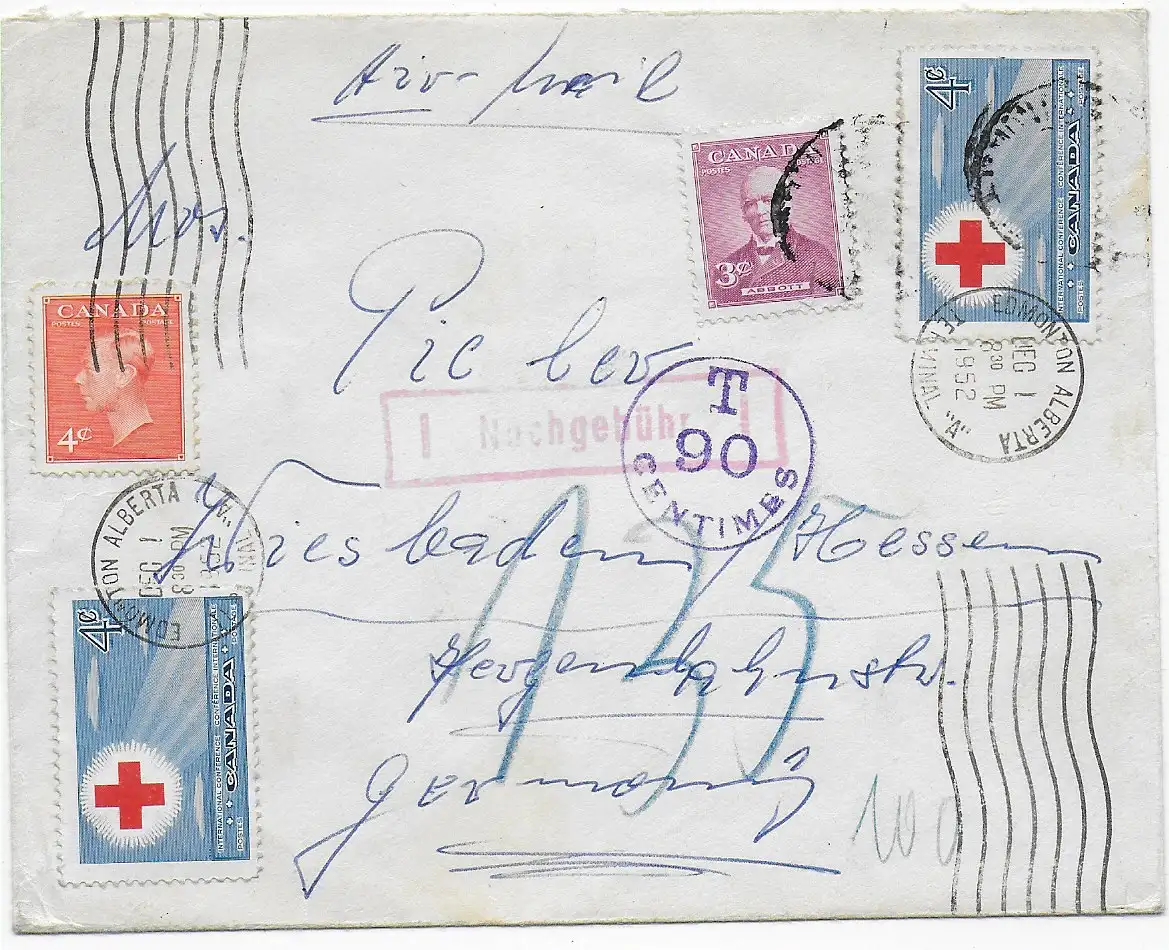 Air-Mail
Mrs.
CANADA
POSTES POSTAGE
3¢
ABBOTT
4¢
INTERNATIONAL CONFERENCE · CONFÉRENCE INTERNATIONALE
CANADA
POSTES POSTAGE
CANADA
POSTES POSTAGE
4¢
Nachgebühr
T
90
CENTIMES
EDMONTON ALBERTA
DEC 1
8 30 PM
1952
TERMINAL "A"
Wiesbaden / Hessen
EDMONTON ALBERTA
DEC 1
8 30 PM
1952
135
4¢
INTERNATIONAL CONFERENCE · CONFÉRENCE INTERNATIONALE
CANADA
POSTES POSTAGE
Germany